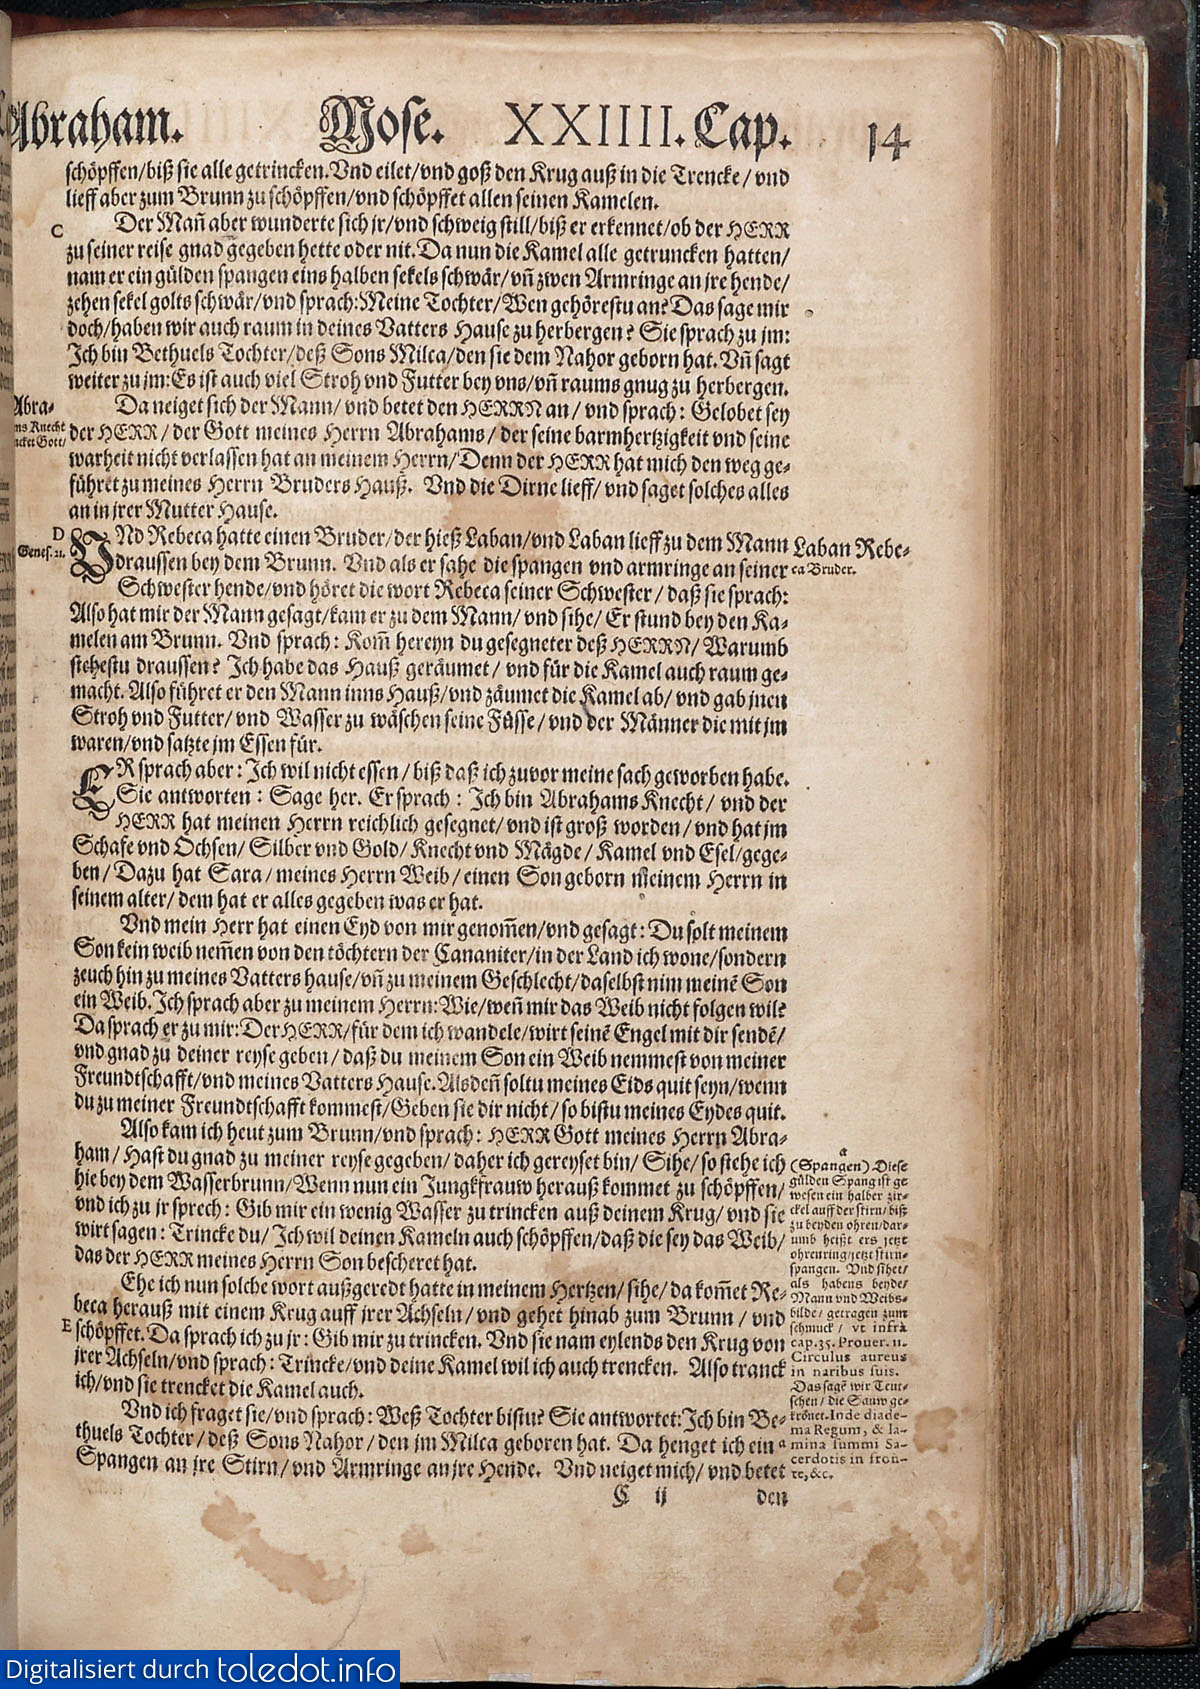 Abraham. Mose. XXIIII. Cap. 14
schöpffen/biß sie alle getrincken. Vnd eilet/vnd goß den Krug auß in die Trencke/vnd
lieff aber zum Brunn zu schöpffen/vnd schöpffet allen seinen Kamelen.
C
Der Mañ aber wunderte sich jr/vnd schweig still/biß er erkennet/ob der HERR
zu seiner reise gnad gegeben hette oder nit. Da nun die Kamel alle getruncken hatten/
nam er ein gülden spangen eins halben sekels schwär/vñ zwen Armringe an jre hende/
zehen sekel golts schwär/vnd sprach: Meine Tochter/Wen gehörestu an? Das sage mir
doch/haben wir auch raum in deines Vatters Hause zu herbergen? Sie sprach zu jm:
Ich bin Bethuels Tochter/deß Sons Milca/den sie dem Nahor geborn hat. Vñ sagt
weiter zu jm: Es ist auch viel Stroh vnd Futter bey vns/vñ raums gnug zu herbergen.
Abra-
ms Knecht
ncket Gott/
Da neiget sich der Mann/vnd betet den HERRN an/vnd sprach: Gelobet sey
der HERR/der Gott meines Herrn Abrahams/der seine barmhertzigkeit vnd seine
warheit nicht verlassen hat an meinem Herrn/Denn der HERR hat mich den weg ge-
führet zu meines Herrn Bruders Hauß. Vnd die Dirne lieff/vnd saget solches alles
an in jrer Mutter Hause.
D
Genes. 21.
VNd Rebeca hatte einen Bruder/der hieß Laban/vnd Laban lieff zu dem Mann
draussen bey dem Brunn. Vnd als er sahe die spangen vnd armringe an seiner
Laban Rebe-
ca Bruder.
Schwester hende/vnd höret die wort Rebeca seiner Schwester/daß sie sprach:
Also hat mir der Mann gesagt/kam er zu dem Mann/vnd sihe/Er stund bey den Ka-
melen am Brunn. Vnd sprach: Kom̃ hereyn du gesegneter deß HERRN/Warumb
stehestu draussen? Ich habe das Hauß geräumet/vnd für die Kamel auch raum ge-
macht. Also führet er den Mann inns Hauß/vnd zäumet die Kamel ab/vnd gab jnen
Stroh vnd Futter/vnd Wasser zu wäschen seine Füsse/vnd der Männer die mit jm
waren/vnd satzte jm Essen für.
ER sprach aber: Ich wil nicht essen/biß daß ich zuvor meine sach geworben habe.
Sie antworten: Sage her. Er sprach: Ich bin Abrahams Knecht/vnd der
HERR hat meinen Herrn reichlich gesegnet/vnd ist groß worden/vnd hat jm
Schafe vnd Ochsen/Silber vnd Gold/Knecht vnd Mägde/Kamel vnd Esel/gege-
ben/Dazu hat Sara/meines Herrn Weib/einen Son geborn meinem Herrn in
seinem alter/dem hat er alles gegeben was er hat.
Vnd mein Herr hat einen Eyd von mir genom̃en/vnd gesagt: Du solt meinem
Son kein weib nem̃en von den töchtern der Cananiter/in der Land ich wone/sondern
zeuch hin zu meines Vatters hause/vñ zu meinem Geschlecht/daselbst nim meinē Son
ein Weib. Ich sprach aber zu meinem Herrn: Wie/weñ mir das Weib nicht folgen wil?
Da sprach er zu mir: Der HERR/für dem ich wandele/wirt seinē Engel mit dir sendē/
vnd gnad zu deiner reyse geben/daß du meinem Son ein Weib nemmest von meiner
Freundtschafft/vnd meines Vatters Hause. Als deñ soltu meines Eids quit seyn/wenn
du zu meiner Freundtschafft kommest/Geben sie dir nicht/so bistu meines Eydes quit.
Also kam ich heut zum Brunn/vnd sprach: HERR Gott meines Herrn Abra-
ham/Hast du gnad zu meiner reyse gegeben/daher ich gereyset bin/Sihe/so stehe ich
hie bey dem Wasserbrunn/Wenn nun ein Jungkfrauw herauß kommet zu schöpffen/
vnd ich zu jr sprech: Gib mir ein wenig Wasser zu trincken auß deinem Krug/vnd sie
wirt sagen: Trincke du/Ich wil deinen Kameln auch schöpffen/daß die sey das Weib/
das der HERR meines Herrn Son bescheret hat.
Ehe ich nun solche wort außgeredt hatte in meinem Hertzen/sihe/da kom̃et Re-
beca herauß mit einem Krug auff jrer Achseln/vnd gehet hinab zum Brunn/vnd
E
schöpffet. Da sprach ich zu jr: Gib mir zu trincken. Vnd sie nam eylends den Krug von
jrer Achseln/vnd sprach: Trincke/vnd deine Kamel wil ich auch trencken. Also tranck
ich/vnd sie trencket die Kamel auch.
Vnd ich fraget sie/vnd sprach: Weß Tochter bistu? Sie antwortet: Ich bin Be-
thuels Tochter/deß Sons Nahor/den jm Milca geboren hat. Da henget ich ein a
Spangen an jre Stirn/vnd Armringe an jre Hende. Vnd neiget mich/vnd betet
a
(Spangen) Diese
gülden Spang ist ge
wesen ein halber zir-
ckel auff der stirn/biß
zu beyden ohren/dar-
umb heißt ers jetzt
ohrenring/jetzt stirn-
spangen. Vnd sihet/
als habens beyde/
Mann vnd Weibs-
bilde/getragen zum
schmuck/vt infrà
cap. 35. Prouer. 11.
Circulus aureus
in naribus suis.
Das sagē wir Teut-
schen/die Sauw ge-
krönet. Inde diade-
ma Regum, & la-
mina summi Sa-
cerdotis in fron-
te, &c.
C ij den
Digitalisiert durch toledot.info